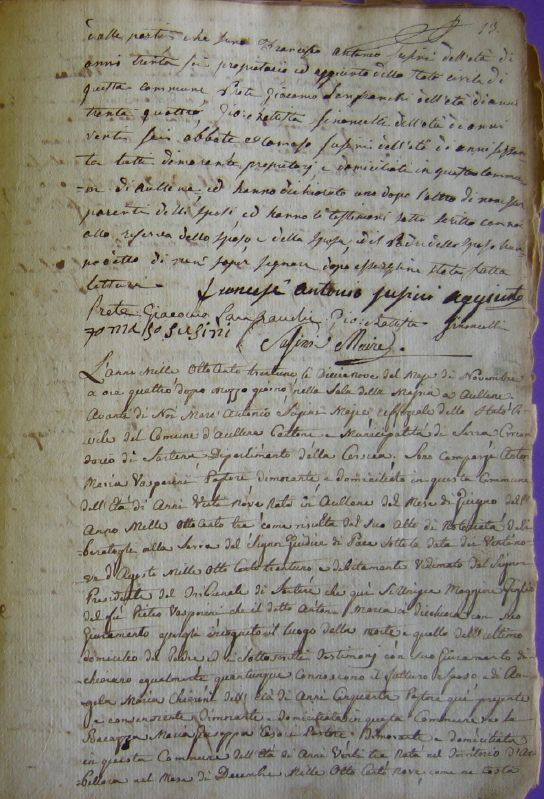 13.
dalle parti che sono Francesco Antonio Susini dell'età di
anni trenta sei proprietario ed aggiunto dello stato civile di
questa commune Prete Giacomo Lanfranchi dell'età di anni
trenta quattro, Gio: Batista Simoncelli dell'età de anni
venti sei abbate e Tomaso Susini dell'età de anni sessan
ta tutti dimoranti proprietarj e domiciliati in questa commu
ne di Aullene ed hanno dichiarato uno dopo l'altro di non esser
parenti delli sposi ed hanno li testimonj sotto scritto con noi
alla riserva dello sposo e della sposa, ed il Padre dello sposo
per non saper segnare dopo essergline stata fatta
lettura
Francesco Antonio Susini aggiunto
Prete Giacomo Lanfranchi Gio: Batista Simoncelli
tomaso susini
Susini Maire
L'anno Mille Otto Cento trentuno li dicianove del Mese di Novembre
a ore quattro dopo mezzo giorno nella Sala della Maria a Aullene
Avante di Noi Marc' Antonio Susini Maire ed officiale dello Stato Ci
vile del Comune d'Aullene Cantone e Municipalità di Serra Circon
dario di Sartena Dipartimento della Corsica. Sono Comparsi Anton
Maria Vasperini Pastore dimorante e domiciliato in questa Commune
dell'Età di Anni Venti Nove Nato in Aullene del Mese di Giugno dell'
Anno Mille Otto Cento tre come risulta del Suo Atto di Notorietà deli
beratogli alla Serra dal Signor Giudice di Pace Sotto la data dei Ventino
ve d'Agosto Mille Otto Cento trentuno e debitamente Vidimato dal Signor
Presidente del Tribunale di Sartena che qui Si Stringa Maggiore figlio
del fù Pietro Vasperini che il detto Anton Maria ci dichiara con Suo
Giuramento essergli incognito il luogo della morte e quello dell'ultimo
domicileo del Padre ed li Sottoscritti Testimonj con Suo Giuramento di
chiarano egualmente quantunque Conoscono il futuro Sposo e di An
gela Maria Chieroni dell'Età di Anni Cinquanta Pastore qui presente
e consenziente dimorante e domiciliata in questa Commune e la
Ragazza Maria Giuseppa Pastore Dimorante e domiciliata
in questa Commune dell'Età di Anni Venti tre Nata nel Territorio d'
nel Mese di Decembre Mille Otto Cento Nove, come ne Costa